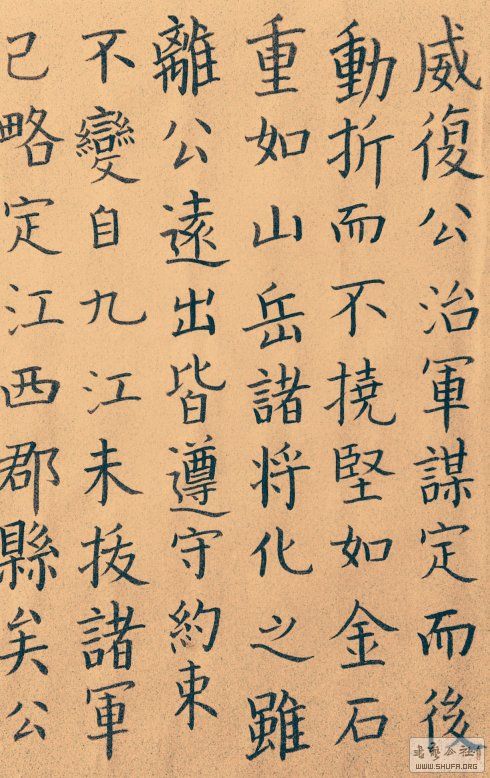 威復公治軍謀定而後
動折而不撓堅如金石
重如山岳諸将化之雖
離公遠出皆遵守約束
不變自九江未拔諸軍
已略定江西郡縣矣公
WWW.SHUFA.ORG